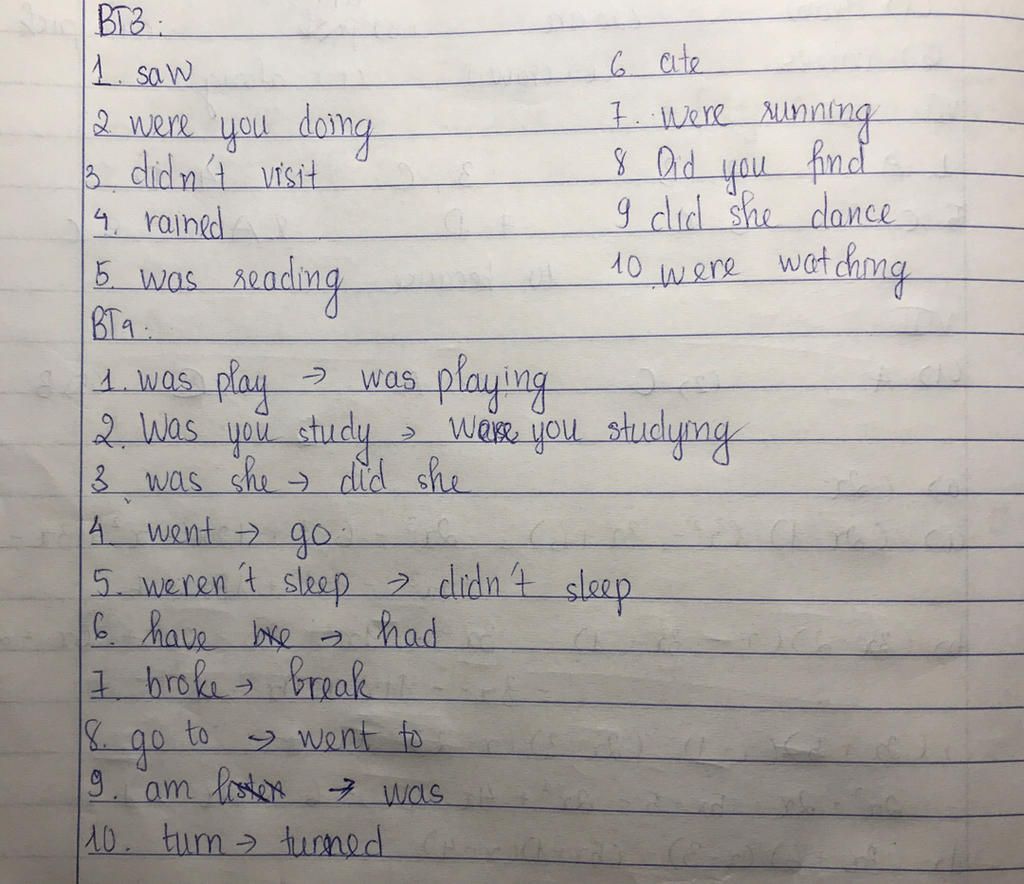 BT3:
1. saw
2 were you doing
3. didn't visit
4. rained
5. was reading
6 ate
7. were running
8 Did you find
9 did she dance
10 were watching
BT4:
1. was play → was playing
2. Was you study → Were you studying
3 was she → did she
4. went → go
5. weren't sleep → didn't sleep
6. have → had
7. broke → break
8. go to → went to
9. am listen → was
10. turn → turned